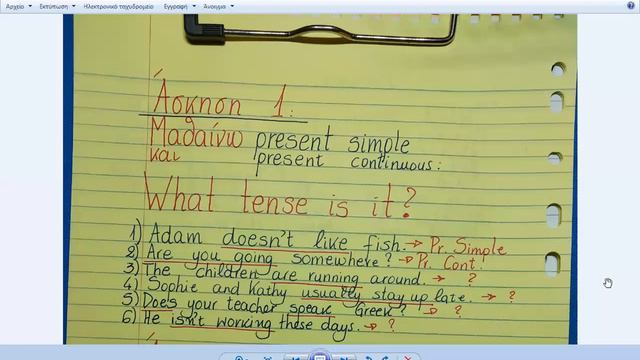 Αρχείο Εκτύπωση Ηλεκτρονικό ταχυδρομείο Εγγραφή Άνοιγμα
Άσκηση 1:
Μαθαίνω present simple
και present continuous:
What tense is it?
1) Adam doesn't like fish.→ Pr. Simple
2) Are you going somewhere? → Pr. Cont.
3) The children are running around. → ?
4) Sophie and Kathy usually stay up late. → ?
5) Does your teacher speak Greek? → ?
6) He isn't working these days. → ?